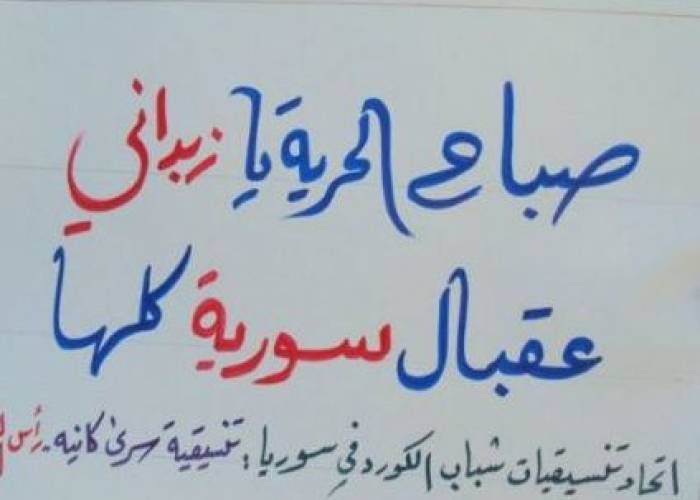 صباح الحرية يا زبداني
عقبال سورية كلها
اتحاد تنسيقيات شباب الكورد في سوريا : تنسيقية سري كانيه - رأس